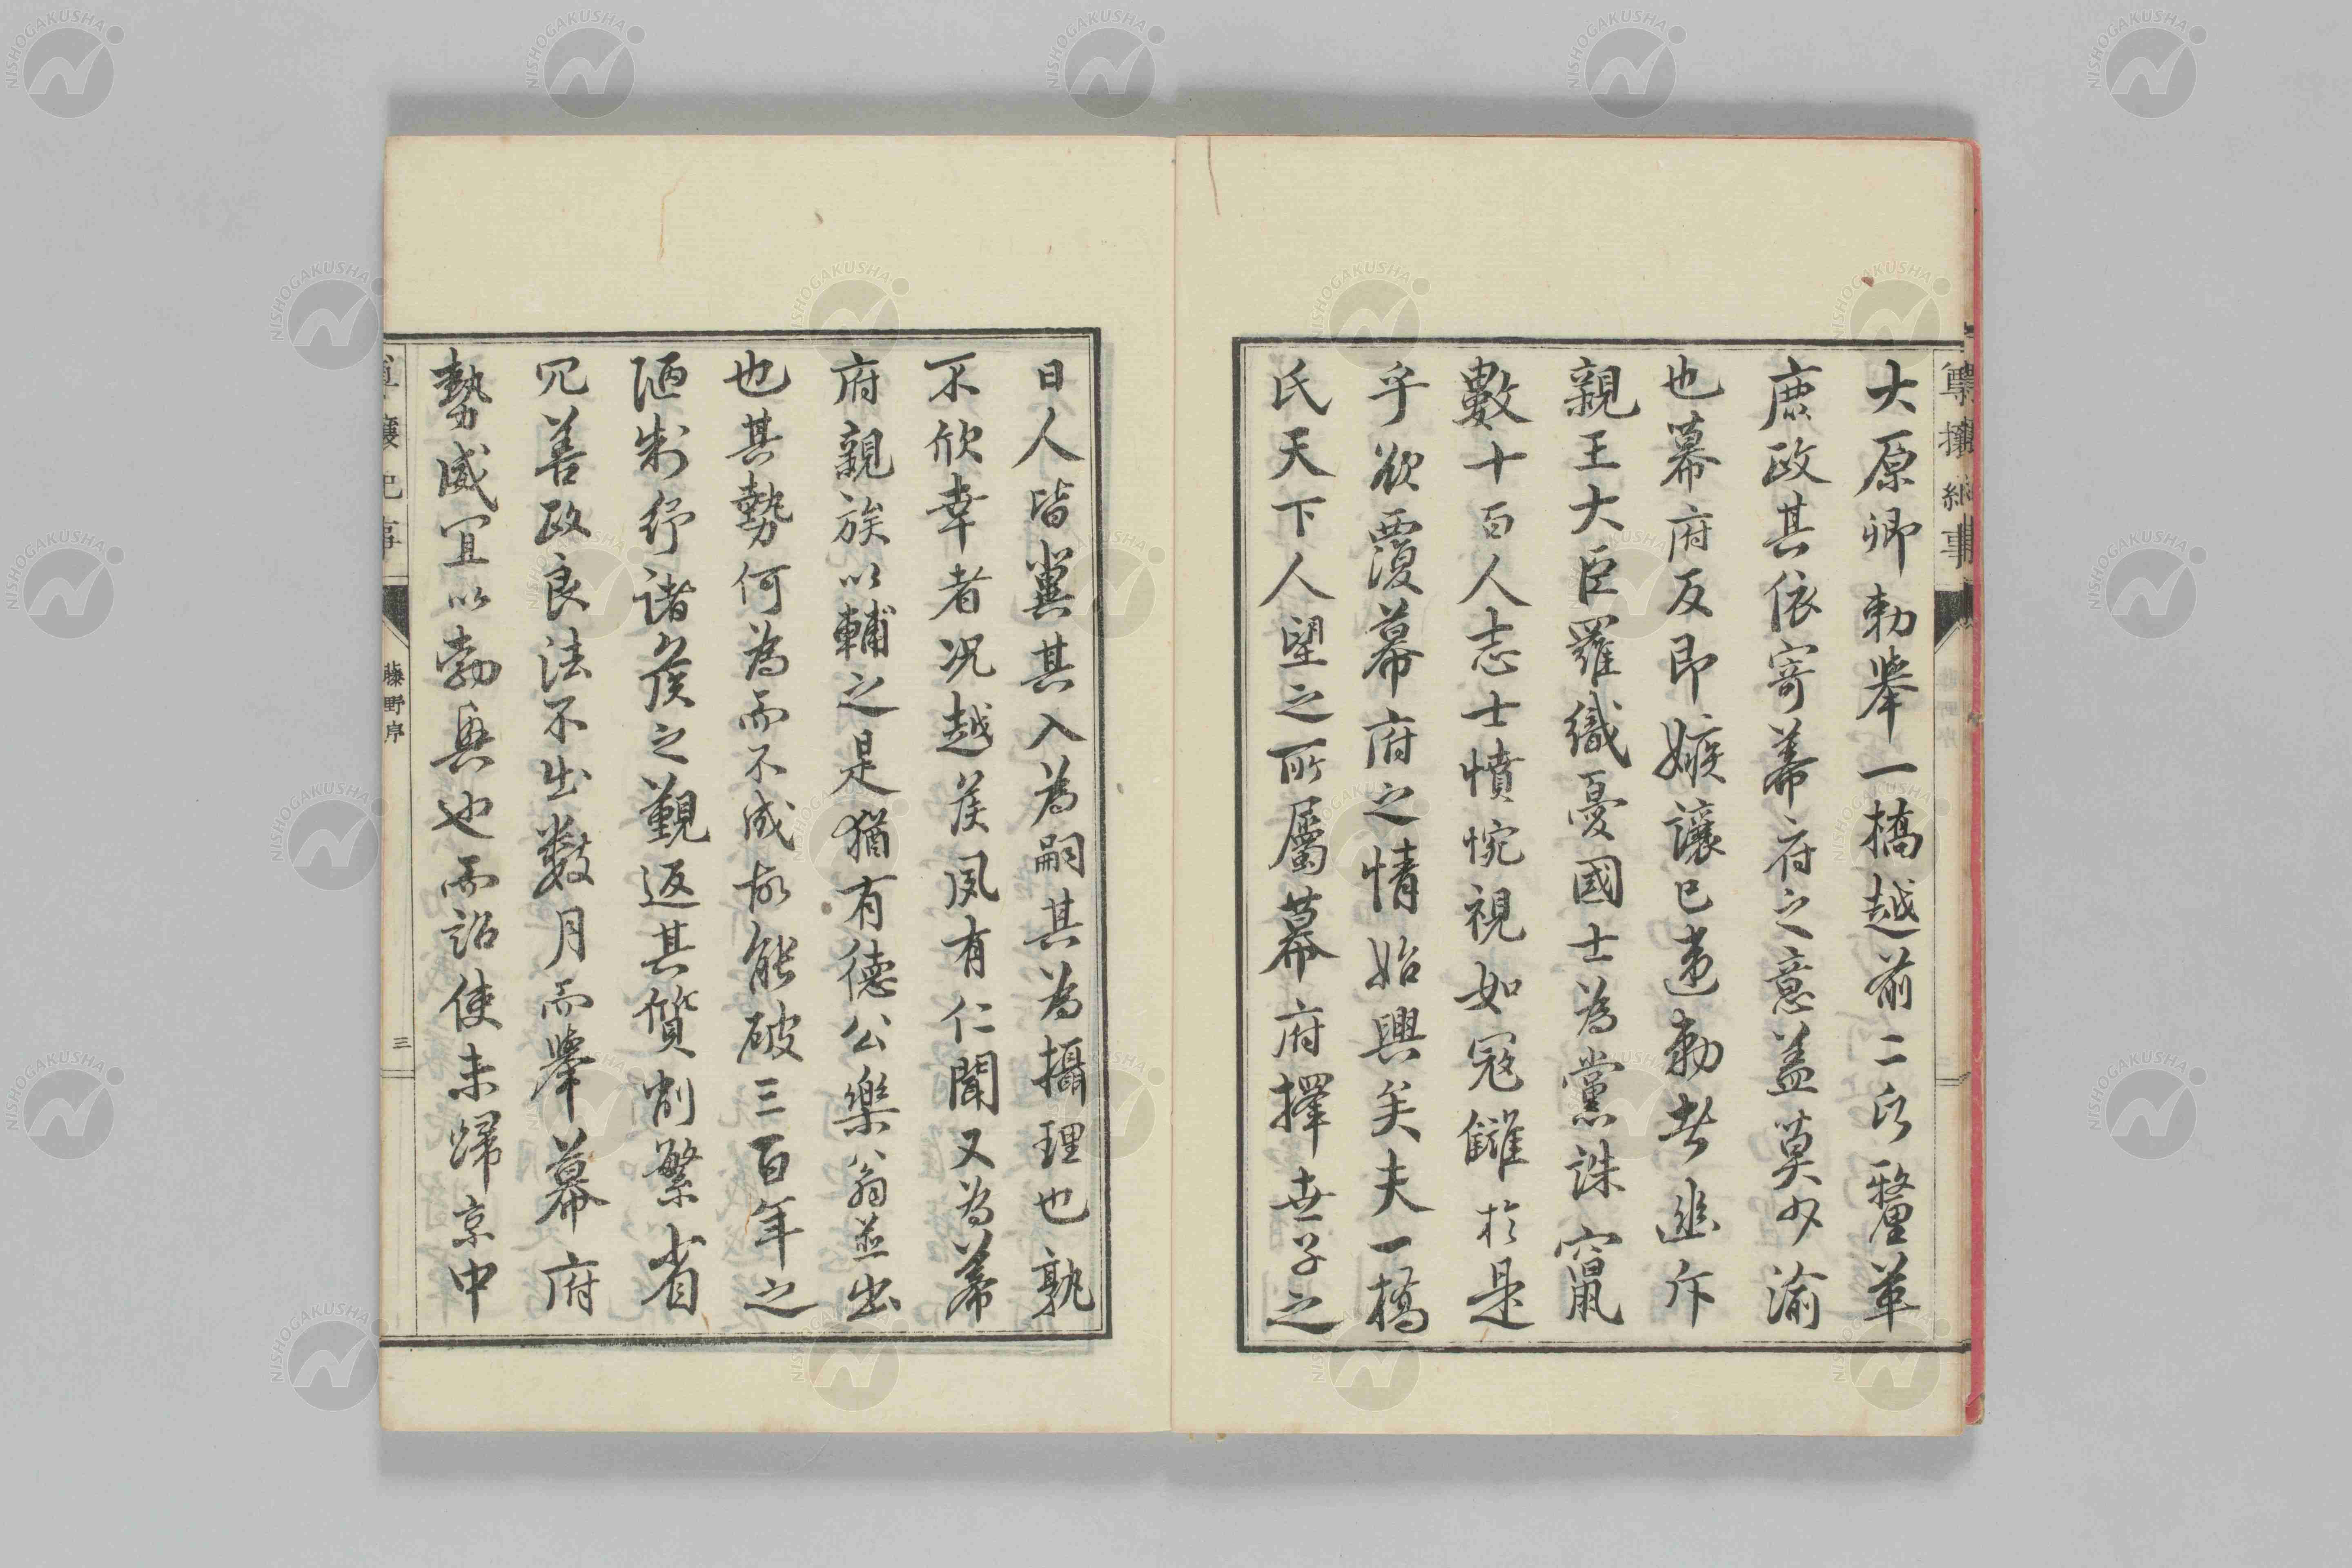 尊攘紀事
大原卿勅擧一橋越前二公釐革
庶政其依寄幕府之意盖莫少渝
也幕府反即嫉讓已違勅者逃斥
親王大臣羅織憂國士為黨誅竄
數十百人志士憤惋視如冦讎於是
乎欲覆幕府之情始興矣夫一橋
氏天下人望之所屬幕府擇世子之
日人皆冀其入為嗣其為攝理也孰
不欣幸者况越侯夙有仁聞又為幕
府親族以輔之是猶有德公樂翁並出
也其勢何為而不成故能破三百年之
陋制紓諸侯之覲返其質割繁省
冗善政良法不出數月而擧幕府
勢威宜以勃興也而詔使未歸京中
尊攘紀事
藤野序
三
NISHOGAKUSHA